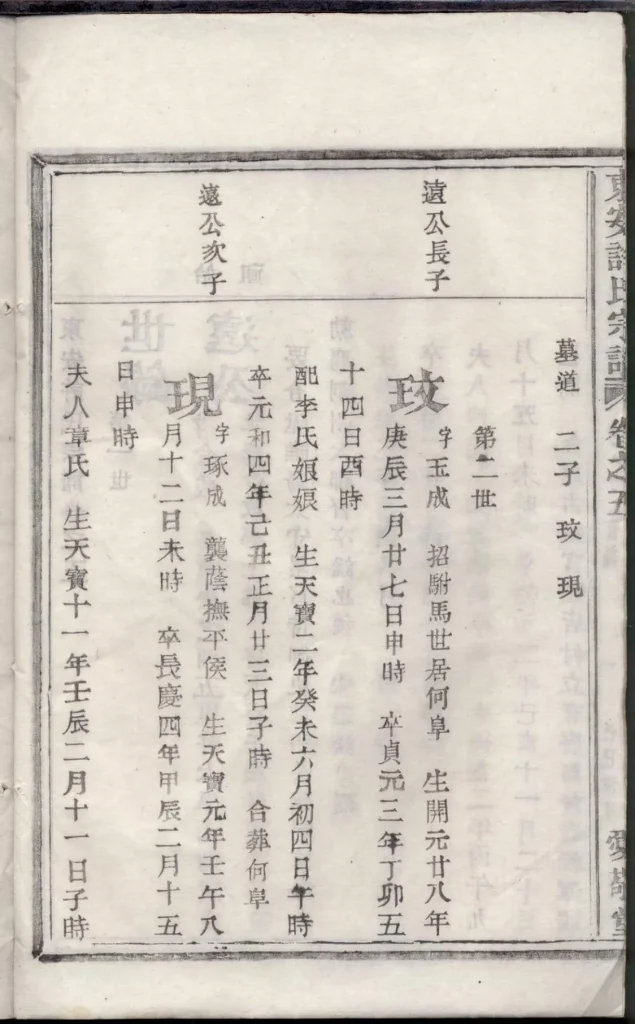 東安許氏宗譜 卷之五 愛敬堂
墓道 二子 玟 現
第二世
遠公長子
玟 字玉成 招駙馬世居何阜 生開元廿八年
庚辰三月廿七日申時 卒貞元三年丁卯五
十四日酉時
配李氏娘娘 生天寶二年癸未六月初四日午時
卒元和四年己丑正月廿三日子時 合葬何阜
遠公次子
現 字琢成 襲蔭撫平侯 生天寶元年壬午八
月十二日未時 卒長慶四年甲辰二月十五
日申時
夫人章氏 生天寶十一年壬辰二月十一日子時